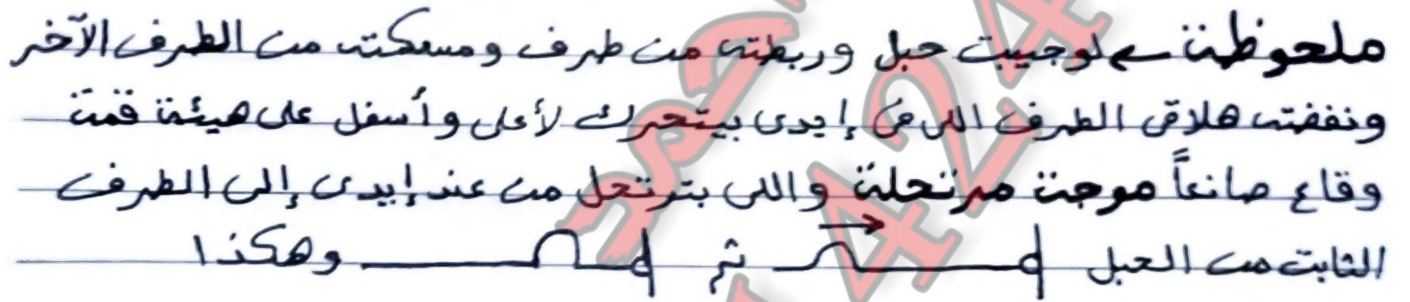 ملحوظة ← لوجيبت حبل وربطته من طرف ومسكته من الطرف الآخر
ونفضته هلاقى الطرف اللى فى إيدى بيتحرك لأعلى وأسفل على هيئة قمة
وقاع صانعاً موجة مرتحلة واللى بترتحل من عند إيدى إلى الطرف
الثابت من الحبل ثم وهكذا
424